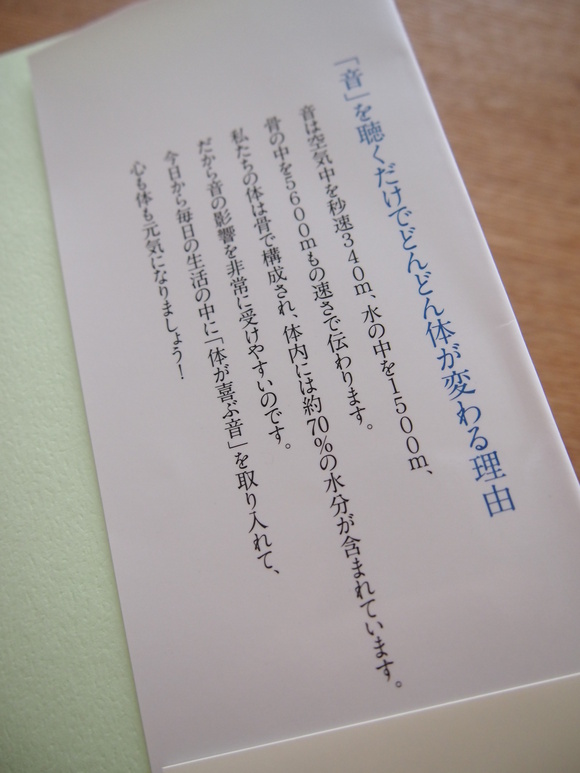 「音」を聴くだけでどんどん体が変わる理由
音は空気中を秒速340m、水の中を1500m、
骨の中を5600mもの速さで伝わります。
私たちの体は骨で構成され、体内には約70%の水分が含まれています。
だから音の影響を非常に受けやすいのです。
今日から毎日の生活の中に「体が喜ぶ音」を取り入れて、
心も体も元気になりましょう!